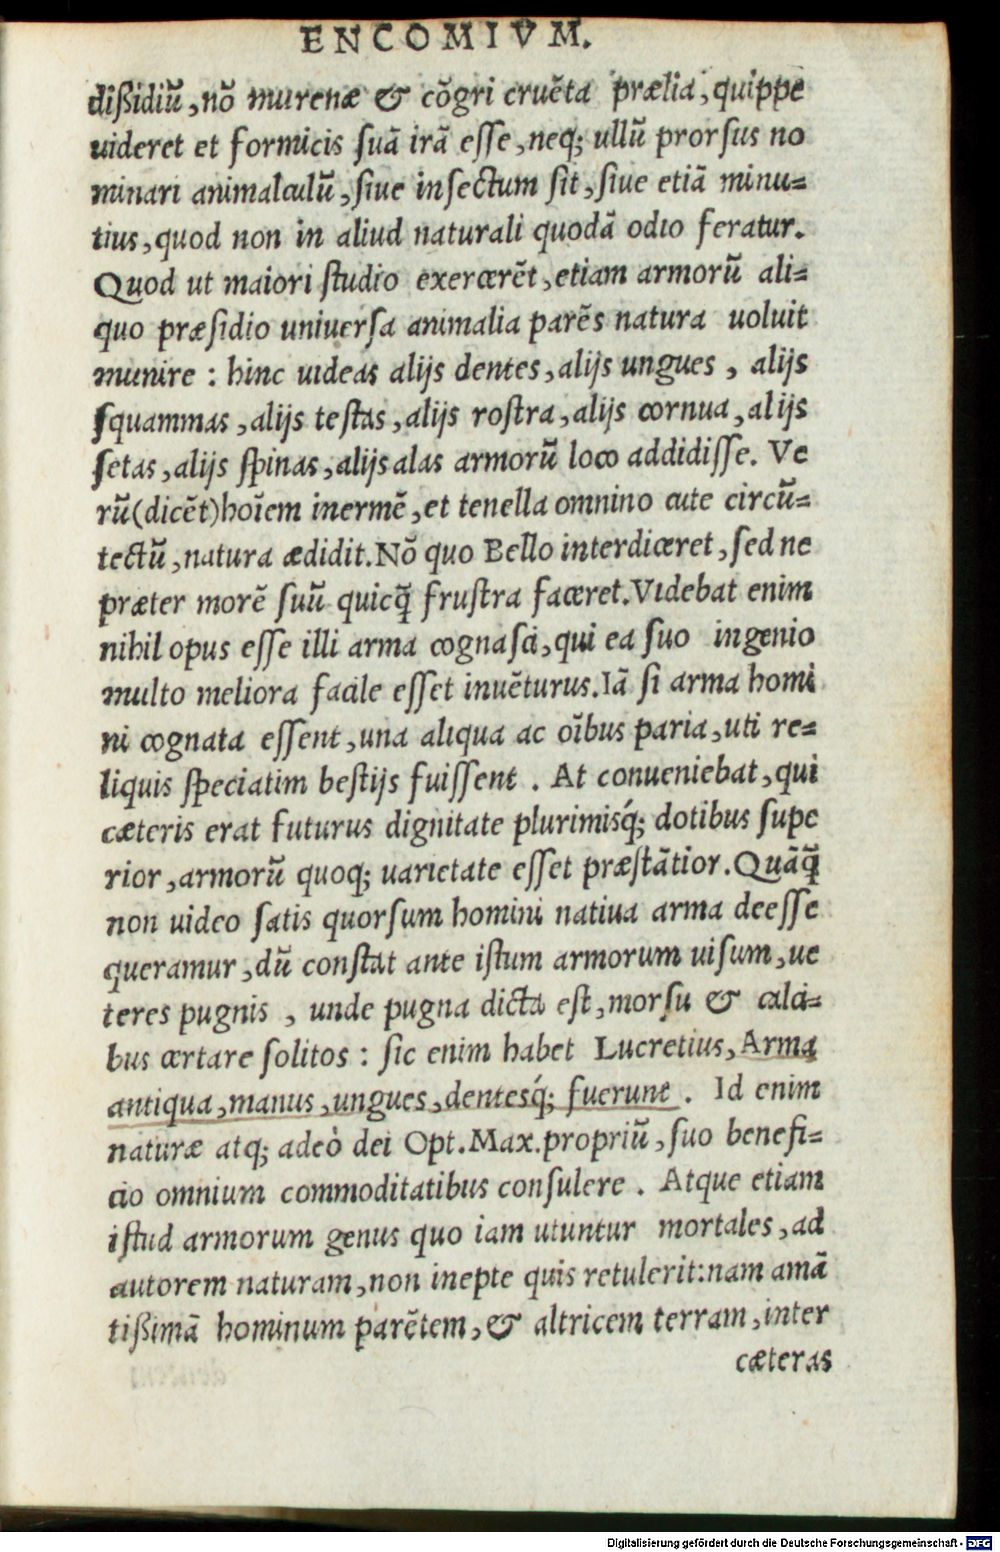 ENCOMIVM.
dißidiũ, nõ murenæ & cõgri cruẽta prælia, quippe
uideret et formicis suã irã esse, neq; ullũ prorsus no
minari animalculũ, siue insectum sit, siue etiã minu=
tius, quod non in aliud naturali quodã odio feratur.
Quod ut maiori studio exercerẽt, etiam armorũ ali=
quo præsidio uniuersa animalia parẽs natura uoluit
munire : hinc uideas alijs dentes, alijs ungues, alijs
squammas, alijs testas, alijs rostra, alijs cornua, alijs
setas, alijs spinas, alijs alas armorũ loco addidisse. Ve
rũ (dicẽt) hoĩem inermẽ, et tenella omnino cute circũ=
tectũ, natura ædidit. Nõ quo Bello interdiceret, sed ne
præter morẽ suũ quicq̃ frustra faceret. Videbat enim
nihil opus esse illi arma cognasci, qui ea suo ingenio
multo meliora facile esset inuẽturus. Iã si arma homi
ni cognata essent, una aliqua ac oĩbus paria, uti re=
liquis speciatim bestijs fuissent. At conueniebat, qui
cæteris erat futurus dignitate plurimisq́; dotibus supe
rior, armorũ quoq; uarietate esset præstãtior. Quãq̃
non uideo satis quorsum homini natiua arma deesse
queramur, dũ constat ante istum armorum uisum, ue
teres pugnis, unde pugna dicta est, morsu & calci=
bus certare solitos : sic enim habet Lucretius, Arma
antiqua, manus, ungues, dentesq́; fuerunt. Id enim
naturæ atq; adeò dei Opt. Max. propriũ, suo benefi=
cio omnium commoditatibus consulere. Atque etiam
istud armorum genus quo iam utuntur mortales, ad
autorem naturam, non inepte quis retulerit: nam amã
tißimã hominum parẽtem, & altricem terram, inter
cæteras
Digitalisierung gefördert durch die Deutsche Forschungsgemeinschaft - DFG